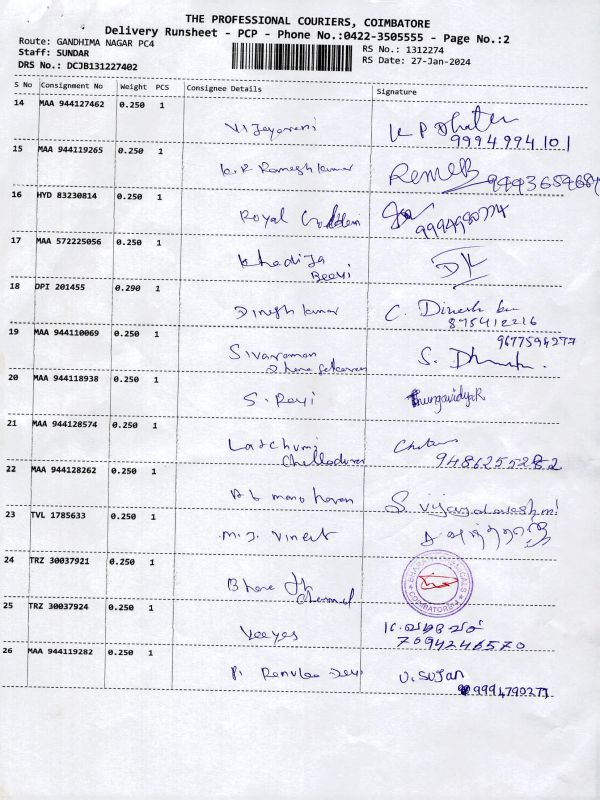 THE PROFESSIONAL COURIERS, COIMBATORE
Delivery Runsheet - PCP - Phone No.:0422-3505555 - Page No.:2
Route: GANDHIMA NAGAR PC4
RS No.: 1312274
Staff: SUNDAR
RS Date: 27-Jan-2024
DRS No.: DCJB131227402
S No Consignment No Weight PCS Consignee Details Signature
14 MAA 944127462 0.250 1
Vijayarani
K P
9994994101
15 MAA 944119265 0.250 1
K.R Rameshkumar
16 HYD 83230814 0.250 1
Royal
17 MAA 572225056 0.250 1
Khadija
Beevi
DK
18 DPI 201455 0.290 1
Dineshkumar C. Dinesh
875412216
19 MAA 944110069 0.250 1
9677594277
Sivaraman S.
20 MAA 944118938 0.250 1
S. Ravi Thungavidya.R
21 MAA 944128574 0.250 1
Latchumi
Chelladurai
22 MAA 944128262 0.250 1
manoharan S. Vijayalakshmi
23 TVL 1785633 0.250 1
M.J. Vineet
24 TRZ 30037921 0.250 1
COIMBATORE
25 TRZ 30037924 0.250 1
Veeyes
7094246570
26 MAA 944119282 0.250 1
P. Devi U. SUJAN
9994790277